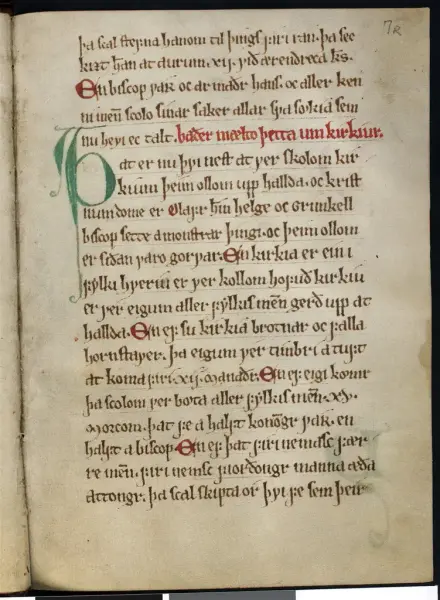 7R
þa scal stefna hanom til þings firi ran. þa sec
kizt han at aurum .xij. við ærendreca k̅s.
En biscop par oc armaðr hans. oc aller ken
ni men scolo sinar saker allar sva sokia sem
nu hevi ec talt. báder mælto þetta um kirkiur.
Þat er nu þvi nest at ver skolom kir
kium þeim ollom upp hallda. oc krist
num dome er Olafr hin helge oc Grimkell
biscop sette a monstrar þingi. oc þeim ollom
er seðan varo gorvar. En kirkia er ein i
fylki hveriu er ver kollom hofuð kirkiu
er ver eigum aller fylkis men gerð upp at
hallda. En ef su kirkia brotnar oc falla
hornstaver. þa eigum ver timbri a tuft
at koma firi xij manaðr. En ef eigi kømr
þa scolom ver bøta aller fylkis men .xv.
morcom. þat fe a halft konongr var. en
halft a biscop. En ef þat firi nemasc fær
re men. firi nemsc fiorðongr manna æða
attongr. þa scal skipta or þvi fe sem þeir